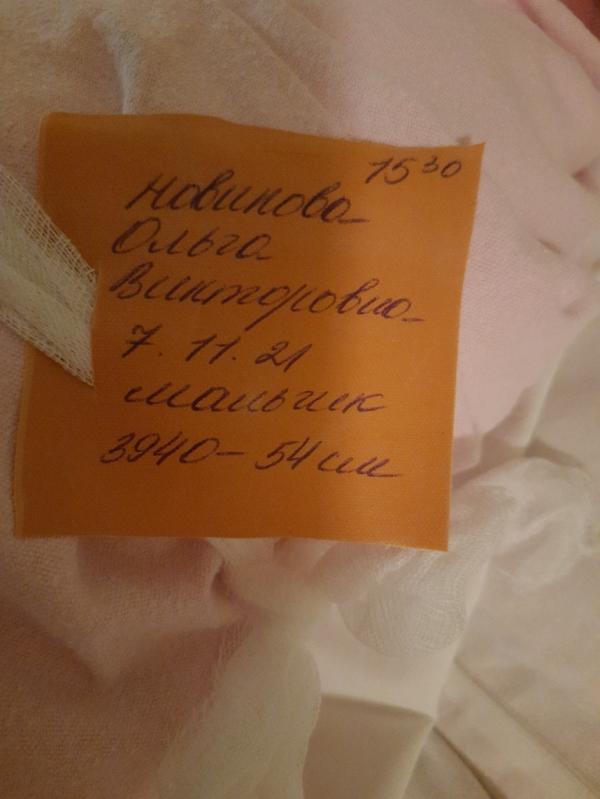 15 30
Новикова
Ольга
Викторовна
7. 11. 21
мальчик
3940 - 54 см